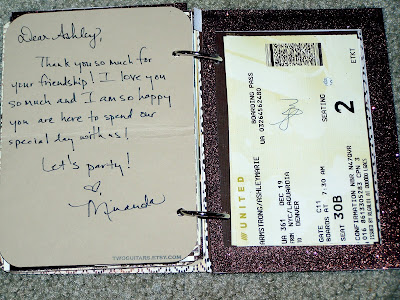 Dear Ashley,
Thank you so much for
your friendship! I love you
so much and I am so happy
you are here to spend our
special day with us!
Let's party!
Miranda
TWOGUITARS.ETSY.COM
UNITED
BOARDING PASS
UA 03264562480
ARMSTRONG/ASHLEYMARIE
UA 351 DEC 19
NYC/LAGUARDIA
DENVER
GATE C11
BOARDS AT 7:30 AM
SEAT 30B
SEATING 2
CONFIRMATION NBR
CPN 3
ETKT